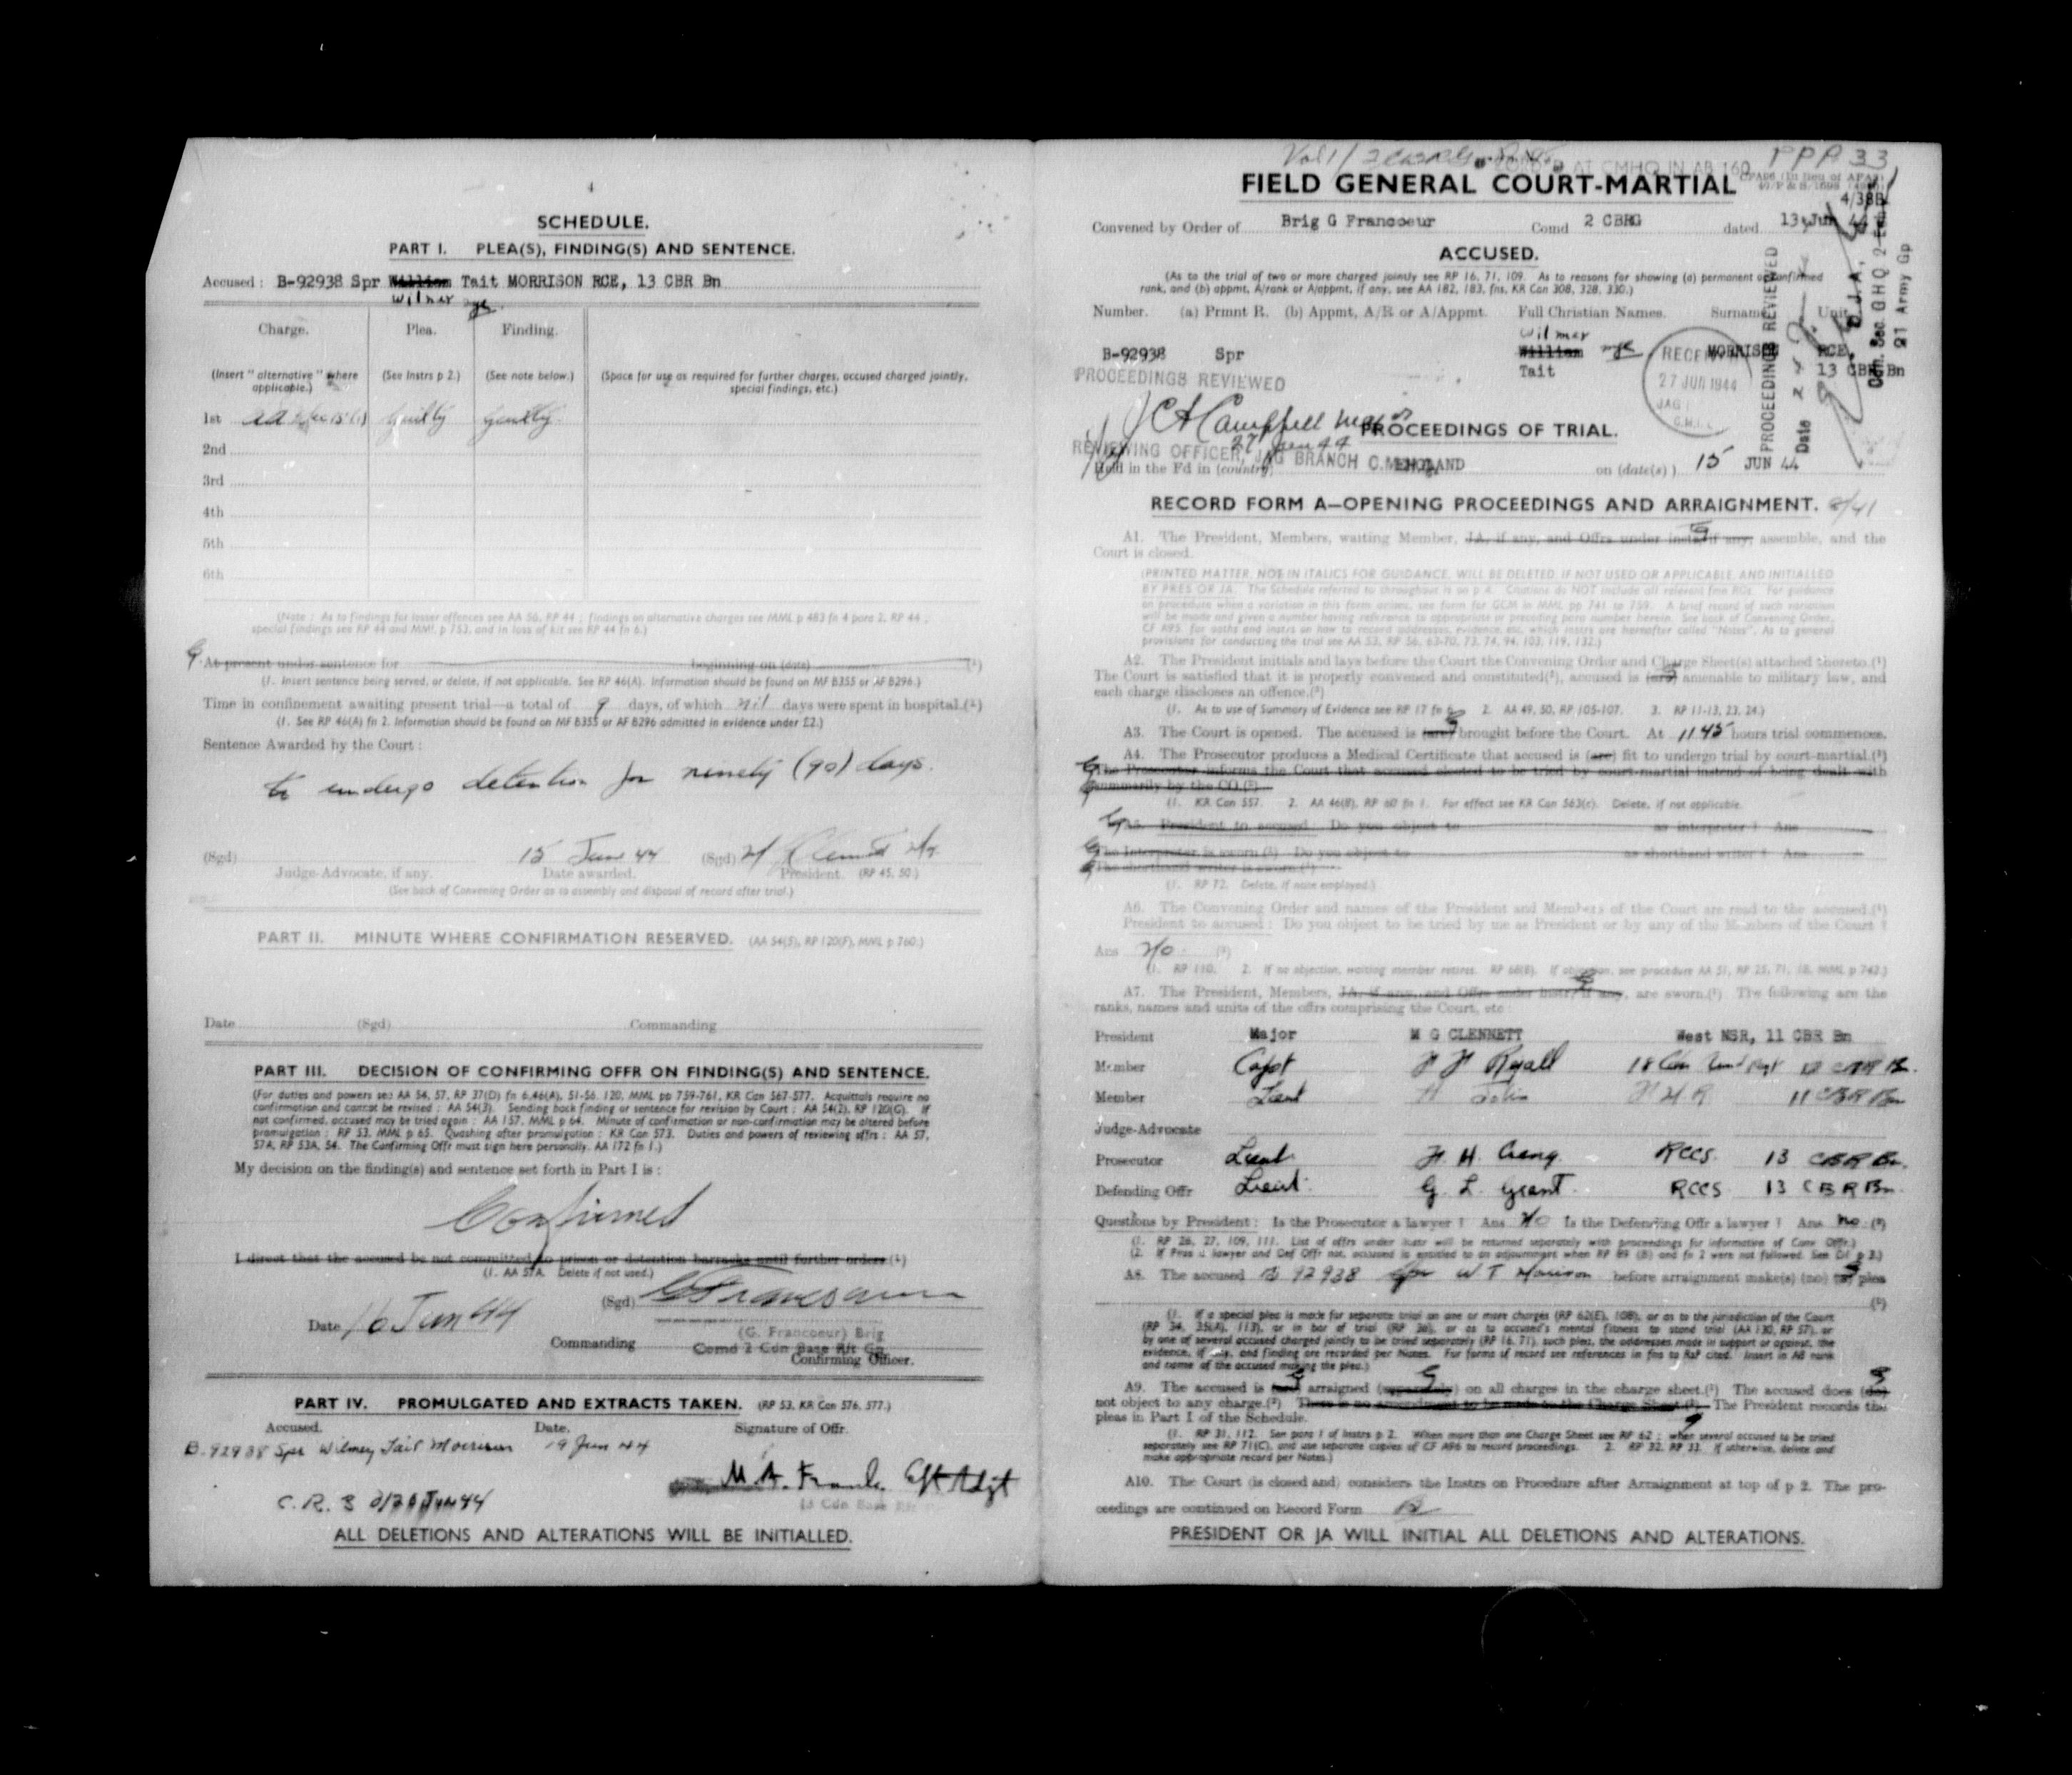 4
SCHEDULE.
PART I. PLEA(S), FINDING(S) AND SENTENCE.
Accused : B-92938 Spr William Tait MORRISON RCE, 13 CBR Bn
Wilmer
Charge. Plea. Finding.
(Insert "alternative" where applicable.) (See Instrs p 2.) (See note below.) (Space for use as required for further charges, accused charged jointly, special findings, etc.)
1st AA Sec 15(1) Guilty Guilty.
2nd
3rd
4th
5th
6th
(Note : As to findings for lesser offences see AA 56, RP 44 ; findings on alternative charges see MML p 483 fn 4 para 2, RP 44 ;
special findings see RP 44 and MML p 753, and in loss of kit see RP 44 fn 6.)
At present under sentence for beginning on (date) (1)
(1. Insert sentence being served, or delete, if not applicable. See RP 46(A). Information should be found on MF B355 or AF B296.)
Time in confinement awaiting present trial—a total of 9 days, of which nil days were spent in hospital.(1)
(1. See RP 46(A) fn 2. Information should be found on MF B355 or AF B296 admitted in evidence under E2.)
Sentence Awarded by the Court :
to undergo detention for ninety (90) days.
(Sgd) 15 June 44 (Sgd)
Judge-Advocate, if any. Date awarded. President. (RP 45, 50.)
(See back of Convening Order as to assembly and disposal of record after trial.)
PART II. MINUTE WHERE CONFIRMATION RESERVED. (AA 54(5), RP 120(F), MML p 760.)
Date (Sgd) Commanding
PART III. DECISION OF CONFIRMING OFFR ON FINDING(S) AND SENTENCE.
(For duties and powers see AA 54, 57, RP 37(D) fn 6,46(A), 51-56, 120, MML pp 759-761, KR Can 567-577. Acquittals require no
confirmation and cannot be revised : AA 54(3). Sending back finding or sentence for revision by Court : AA 54(2), RP 120(G). If
not confirmed, accused may be tried again : AA 157, MML p 64. Minute of confirmation or non-confirmation may be altered before
promulgation : RP 53, MML p 65. Quashing after promulgation : KR Can 573. Duties and powers of reviewing offrs : AA 57,
57A, RP 53A, 54. The Confirming Offr must sign here personally. AA 172 fn 1.)
My decision on the finding(s) and sentence set forth in Part I is :
Confirmed
I direct that the accused be not committed to prison or detention barracks until further orders.(1)
(1. AA 57A. Delete if not used.)
(Sgd) G Francoeur
Date 16 Jun 44
(G. Francoeur) Brig
Commanding Comd 2 Cdn Base Rft Gp
Confirming Officer.
PART IV. PROMULGATED AND EXTRACTS TAKEN. (RP 53, KR Can 576, 577.)
Accused. Date. Signature of Offr.
B-92938 Spr Wilmer Tait Morrison 19 Jun 44
M. A. Frank Capt Adjt
13 Cdn Base Rft
ALL DELETIONS AND ALTERATIONS WILL BE INITIALLED.
AT CMHQ IN AB 160
PPA 33
4/38B
FIELD GENERAL COURT-MARTIAL
Convened by Order of Brig G Francoeur Comd 2 CBRG dated 13 Jun 44
ACCUSED.
(As to the trial of two or more charged jointly see RP 16, 71, 109. As to reasons for showing (a) permanent or confirmed
rank, and (b) appmt, A/rank or A/appmt, if any, see AA 182, 183, fns, KR Can 308, 328, 330.)
Number. (a) Prmnt R. (b) Appmt, A/R or A/Appmt. Full Christian Names. Surname. Unit.
Wilmer
B-92938 Spr William MORRISON RCE,
Tait 13 CBR Bn
PROCEEDINGS REVIEWED
J C A Campbell Major
27 Jun 44
REVIEWING OFFICER, JAG BRANCH C.M.H.Q.
27 JUN 1944
PROCEEDINGS REVIEWED
Date
Cdn. Sec GHQ 2 Ech
21 Army Gp
PROCEEDINGS OF TRIAL.
Held in the Fd in (country) ENGLAND on (date(s)) 15 JUN 44
RECORD FORM A—OPENING PROCEEDINGS AND ARRAIGNMENT.
A1. The President, Members, waiting Member, JA, if any, and Offrs under instr, if any, assemble, and the
Court is closed.
(PRINTED MATTER, NOT IN ITALICS FOR GUIDANCE, WILL BE DELETED, IF NOT USED OR APPLICABLE, AND INITIALLED
BY PRES OR JA. The Schedule referred to throughout is on p 4. Citations do NOT include all relevant fnn RCs. For guidance
on procedure when a variation in this form arises, see form for GCM in MML pp 741 to 759. A brief record of such variation
will be made and given a number having reference to appropriate or preceding para number herein. See back of Convening Order,
CF A95, for oaths and instrs on how to record addresses, evidence, etc, which instrs are hereafter called "Notes". As to general
provisions for conducting the trial see AA 53, RP 56, 63-70, 73, 74, 94, 103, 119, 132.)
A2. The President initials and lays before the Court the Convening Order and Charge Sheet(s) attached thereto.(1)
The Court is satisfied that it is properly convened and constituted(2), accused is (are) amenable to military law, and
each charge discloses an offence.(3)
(1. As to use of Summary of Evidence see RP 17 fn 6. 2. AA 49, 50, RP 105-107. 3. RP 11-13, 23, 24.)
A3. The Court is opened. The accused is (are) brought before the Court. At 1145 hours trial commences.
A4. The Prosecutor produces a Medical Certificate that accused is (are) fit to undergo trial by court-martial.(1)
The Prosecutor informs the Court that accused elected to be tried by court-martial instead of being dealt with
summarily by the CO.(2)
(1. KR Can 557. 2. AA 46(8), RP 60 fn 1. For effect see KR Can 563(c). Delete, if not applicable.
A5. President to accused: Do you object to as interpreter ? Ans
The Interpreter is sworn.(1) Do you object to as shorthand writer ? Ans
The shorthand writer is sworn.(1)
(1. RP 72. Delete, if none employed.)
A6. The Convening Order and names of the President and Members of the Court are read to the accused.(1)
President to accused: Do you object to be tried by me as President or by any of the Members of the Court ?
Ans No (2)
(1. RP 110. 2. If no objection, waiting member retires. RP 68(B). If objection, see procedure AA 51, RP 25, 71, 18, MML p 742.)
A7. The President, Members, JA, if any, and Offrs under instr, if any, are sworn.(1) The following are the
ranks, names and units of the offrs comprising the Court, etc :
President Major M G CLENNETT West NSR, 11 CBR Bn
Member Capt Ryall 12 CBR Bn.
Member Lieut 11 CBR Bn
Judge-Advocate
Prosecutor Lieut. H. H. RCCS. 13 CBR Bn.
Defending Offr Lieut. G. L. Grant. RCCS 13 CBR Bn.
Questions by President : Is the Prosecutor a lawyer ? Ans No Is the Defending Offr a lawyer ? Ans no (2)
(1. RP 26, 27, 109, 111. List of offrs under instr will be returned separately with proceedings for information of Conv Offr.)
(2. If Pros a lawyer and Def Offr not, accused is entitled to an adjournment when RP 89 (B) and fn 2 were not followed. See DI p 3.)
A8. The accused B 92938 Spr W T Morrison before arraignment make(s) (no) (a) plea
(1)
(1. If a special plea is made for separate trial on one or more charges (RP 62(E), 108), or as to the jurisdiction of the Court
(RP 34, 35(A), 113), or in bar of trial (RP 36), or as to accused's mental fitness to stand trial (AA 130, RP 57), or
by one of several accused charged jointly to be tried separately (RP 16, 71), such plea, the addresses made in support or against, the
evidence, if any, and finding are recorded per Notes. For forms of record see references in fns to RsP cited. Insert in A8 rank
and name of the accused making the plea.)
A9. The accused is (are) arraigned (separately) on all charges in the charge sheet.(1) The accused does (do)
not object to any charge.(2) There is no amendment to be made to the Charge Sheet.(2) The President records the
pleas in Part I of the Schedule.
(1. RP 31, 112. See para 1 of Instrs p 2. When more than one Charge Sheet see RP 62 ; when several accused to be tried
separately see RP 71(C), and use separate copies of CF A96 to record proceedings. 2. RP 32, RP 33. If otherwise, delete and
make appropriate record per Notes.)
A10. The Court (is closed and) considers the Instrs on Procedure after Arraignment at top of p 2. The pro-
ceedings are continued on Record Form B
PRESIDENT OR JA WILL INITIAL ALL DELETIONS AND ALTERATIONS.